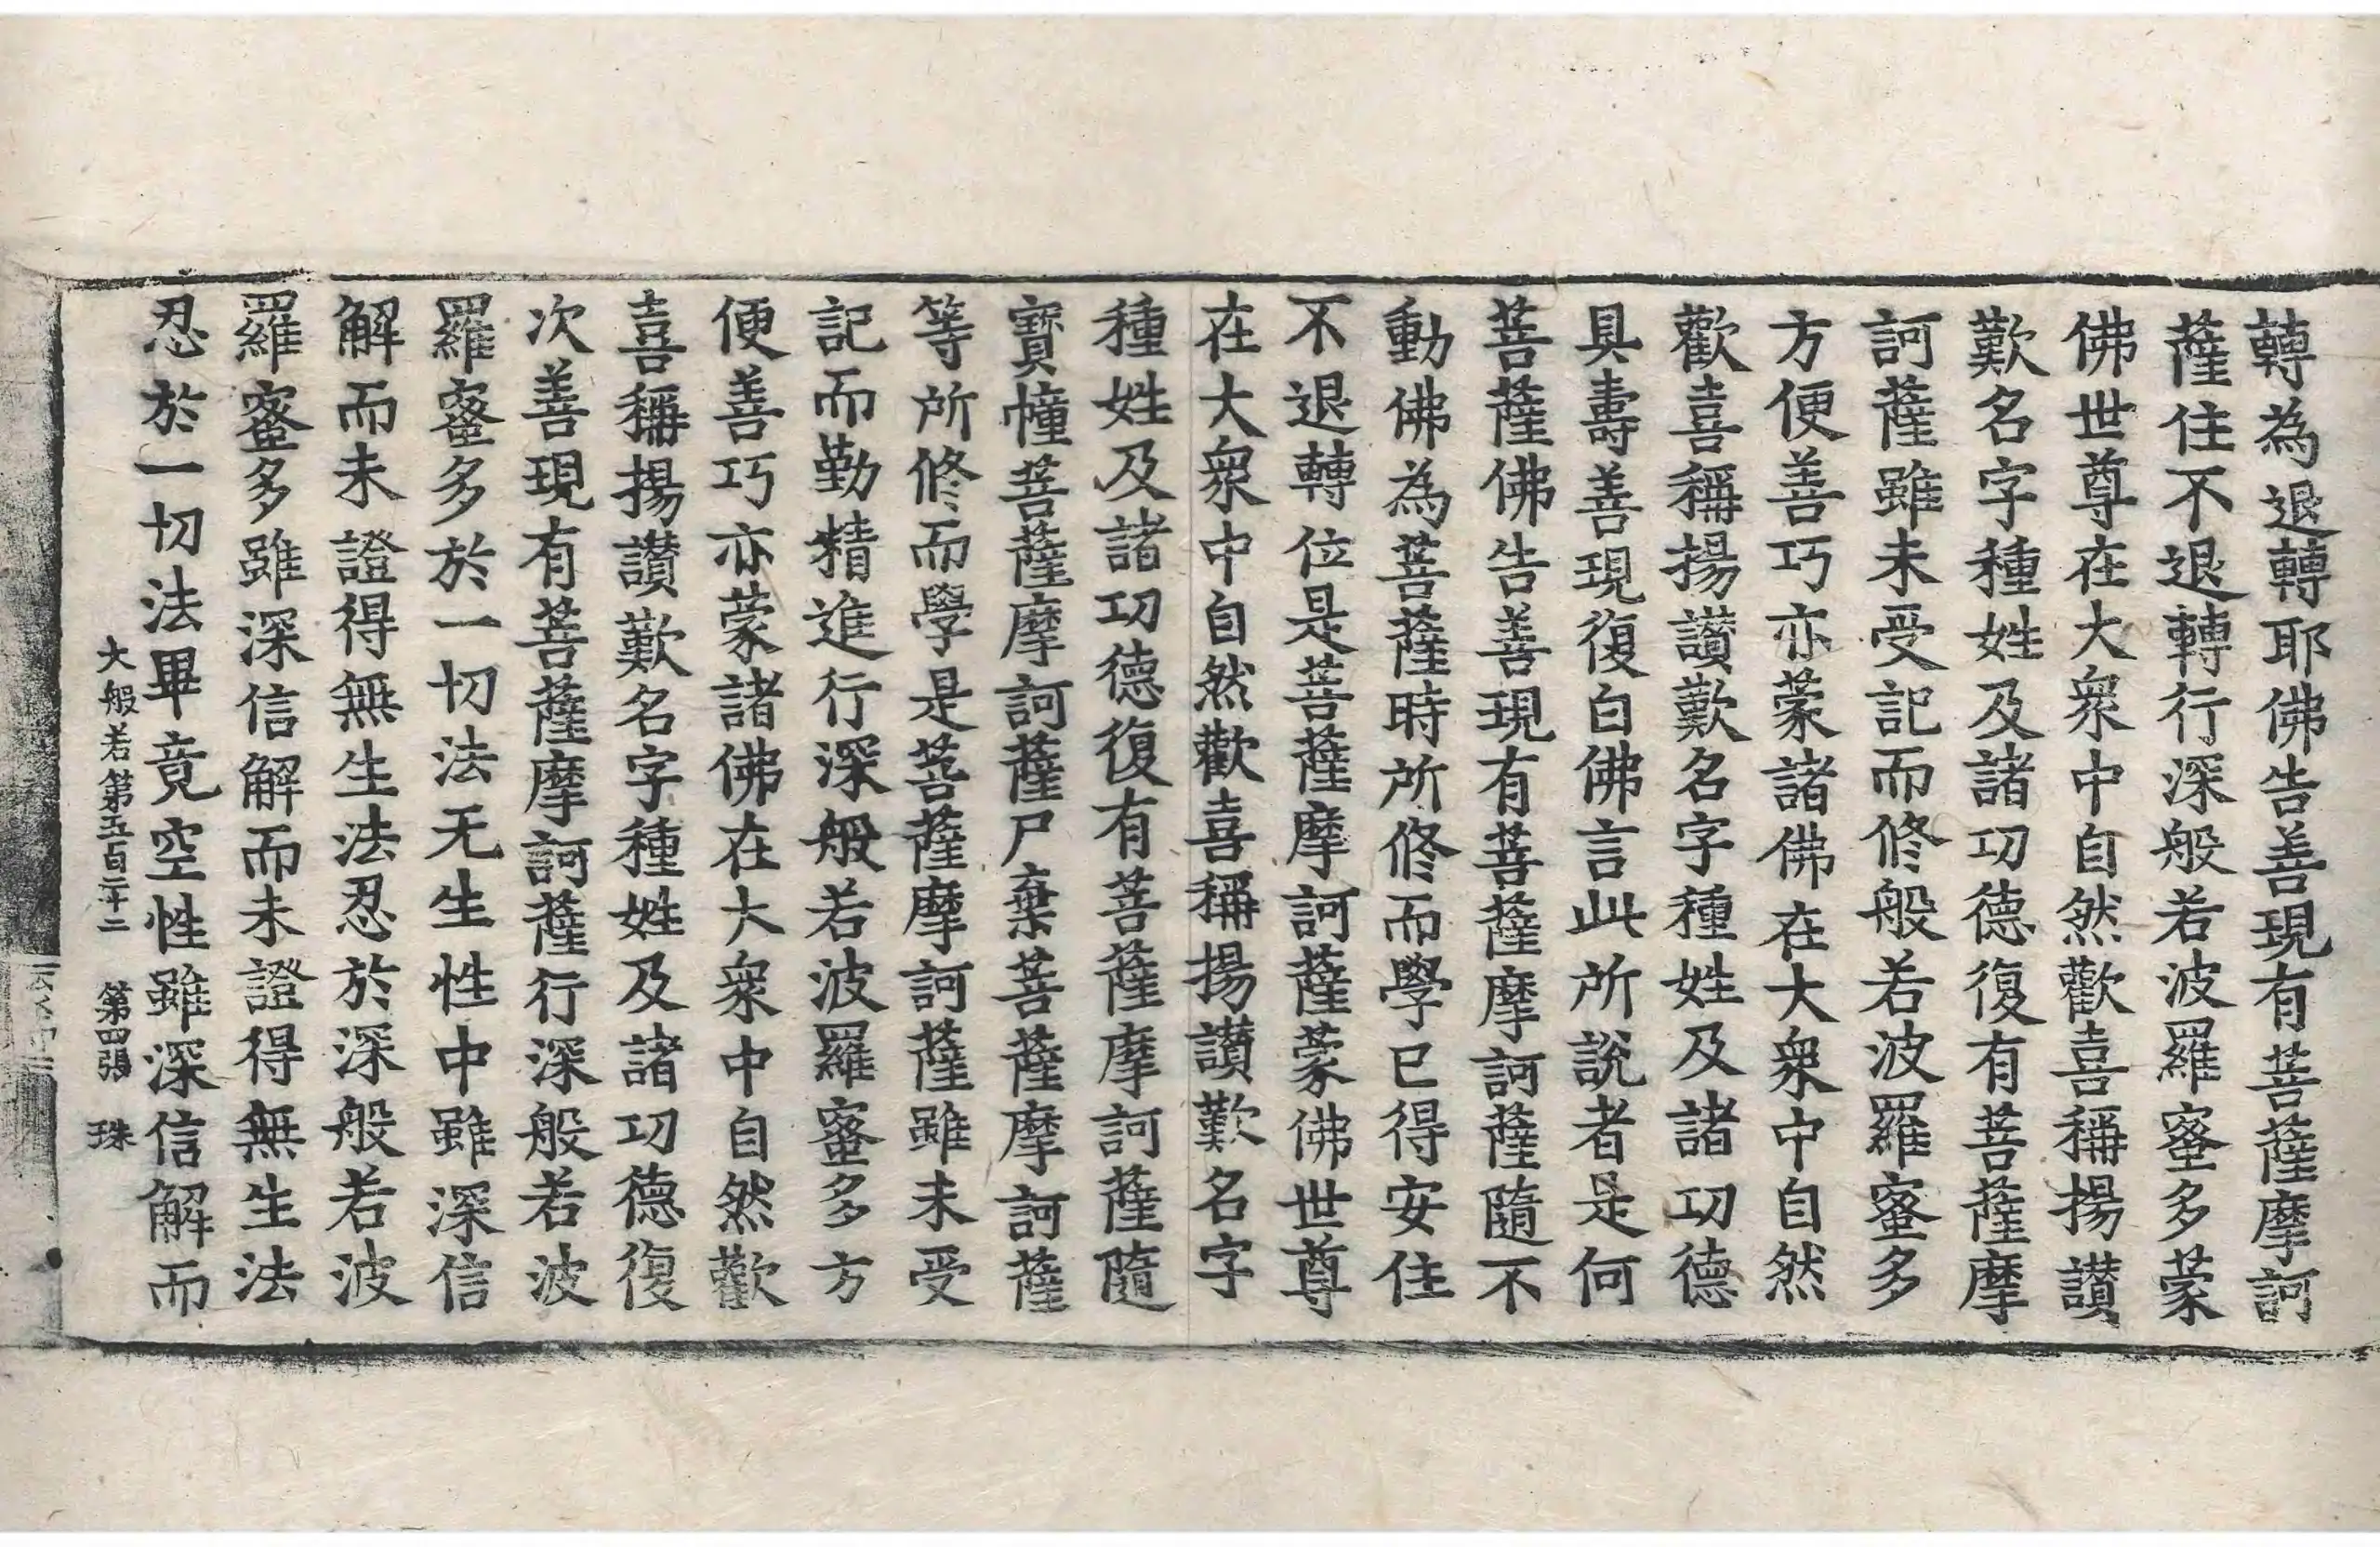 轉為退轉耶佛告善現有菩薩摩訶
薩住不退轉行深般若波羅蜜多蒙
佛世尊在大眾中自然歡喜稱揚讃
歎名字種姓及諸功德復有菩薩摩
訶薩雖未受記而修般若波羅蜜多
方便善巧亦蒙諸佛在大眾中自然
歡喜稱揚讃歎名字種姓及諸功德
具壽善現復白佛言此所說者是何
菩薩佛告善現有菩薩摩訶薩隨不
動佛為菩薩時所修而學已得安住
不退轉位是菩薩摩訶薩蒙佛世尊
在大眾中自然歡喜稱揚讃歎名字
種姓及諸功德復有菩薩摩訶薩隨
寶幢菩薩摩訶薩尸棄菩薩摩訶薩
等所修而學是菩薩摩訶薩雖未受
記而勤精進行深般若波羅蜜多方
便善巧亦蒙諸佛在大眾中自然歡
喜稱揚讃歎名字種姓及諸功德復
次善現有菩薩摩訶薩行深般若波
羅蜜多於一切法无生性中雖深信
解而未證得無生法忍於深般若波
羅蜜多雖深信解而未證得無生法
忍於一切法畢竟空性雖深信解而
大般若第五百二十二 第四張 珠